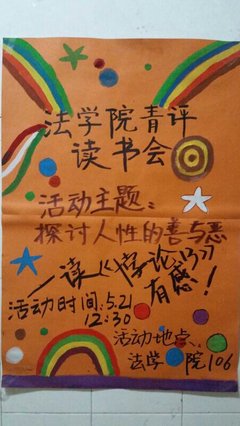 法学院青评
读书会
活动主题:
探讨人性的善与恶
—读《悖论13》
有感!
活动时间:5.21
12:30
活动地点:
法学院106